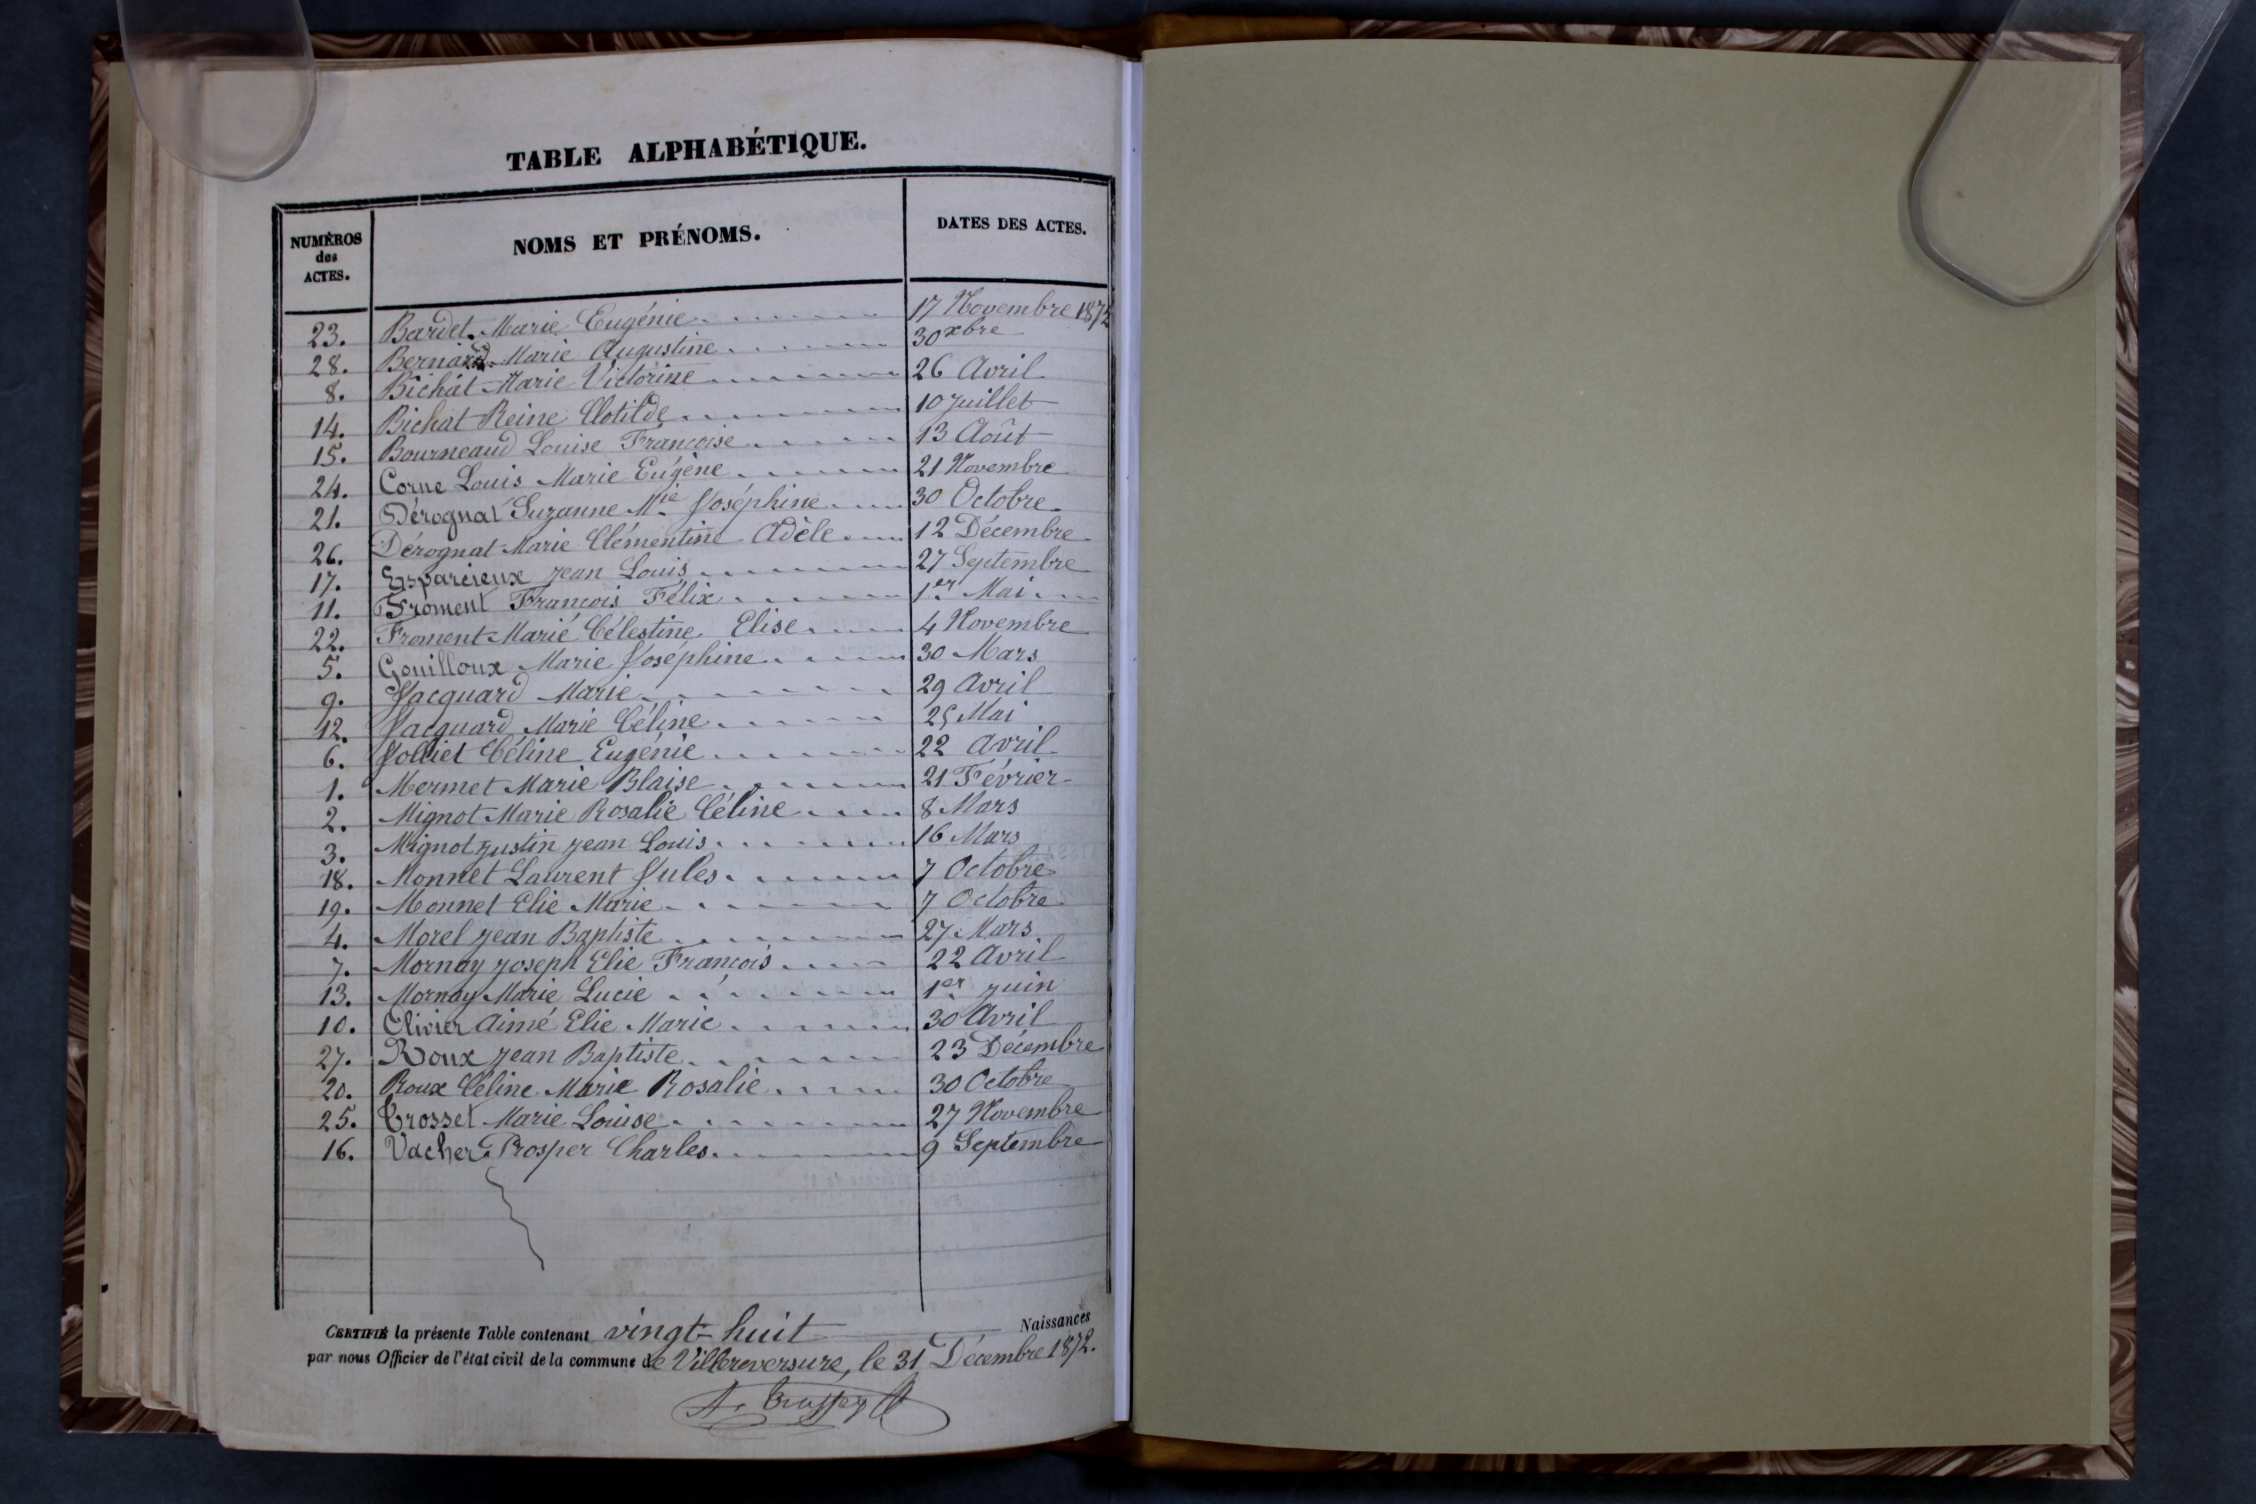 TABLE ALPHABÉTIQUE.
NUMÉROS des ACTES. NOMS ET PRÉNOMS. DATES DES ACTES.
23. Bardet Marie Eugénie 17 Novembre 1872
28. Bernard Marie Augustine 30 xbre
8. Bichat Marie Victorine 26 Avril
14. Bichat Reine Clotilde 10 Juillet
15. Bourneaud Louise Françoise 13 Août
24. Corne Louis Marie Eugène 21 Novembre
21. Dérognat Suzanne Mie Joséphine 30 Octobre
26. Dérognat Marie Clémentine Adèle 12 Décembre
17. Esparcieux Jean Louis 27 Septembre
11. Froment François Félix 1er Mai
22. Froment Marie Célestine Elise 4 Novembre
5. Gouilloux Marie Joséphine 30 Mars
9. Jacquard Marie 29 Avril
12. Jacquard Marie Céline 25 Mai
6. Jolliet Céline Eugénie 22 Avril
1. Mermet Marie Blaise 21 Février
2. Mignot Marie Rosalie Céline 8 Mars
3. Mignot Justin Jean Louis 16 Mars
18. Monnet Laurent Jules 7 Octobre
19. Monnet Elie Marie 7 Octobre
4. Morel Jean Baptiste 27 Mars
7. Mornay Joseph Elie François 22 Avril
13. Mornay Marie Lucie 1er Juin
10. Olivier Aimé Elie Marie 30 Avril
27. Roux Jean Baptiste 23 Décembre
20. Roux Céline Marie Rosalie 30 Octobre
25. Trosset Marie Louise 27 Novembre
16. Vacher Prosper Charles 9 Septembre
CERTIFIÉ la présente Table contenant vingt-huit Naissances
par nous Officier de l'état civil de la commune de Villereversure, le 31 Décembre 1872.